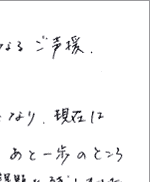 なる ご声援、
なり、現在は
あと一歩のところ